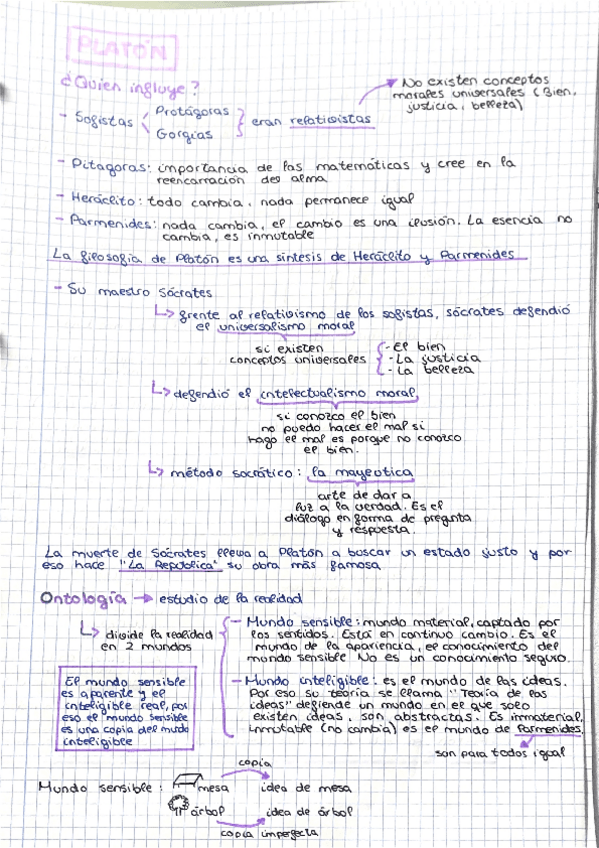 PLATÓN
¿Quien influye?
- Sofistas Protágoras
Gorgias
eran relativistas
No existen conceptos
morales universales (Bien,
justicia, belleza)
- Pitagoras: importancia de las matemáticas y cree en la
reencarnación del alma
- Heráclito: todo cambia, nada permanece igual
- Parmenides: nada cambia, el cambio es una ilusión. La esencia no
cambia, es inmutable
La filosofia de Platón es una sintesis de Heráclito y Parmenides
- Su maestro Sócrates
frente al relativismo de los sofistas, sócrates defendió
el universalismo moral
si existen
conceptos universales
- El bien
- La justicia
- La belleza
defendió el intelectualismo moral
si conozco el bien
no puedo hacer el mal si
hago el mal es porque no conozco
el bien.
método socrático: la mayeotica
arte de dar a
luz a la verdad. Es el
diálogo en forma de pregunta
y respuesta.
La muerte de Sócrates lleva a Platón a buscar un estado justo y por
eso hace "La República" su obra más famosa
Ontología → estudio de la realidad
divide la realidad
en 2 mundos
- Mundo sensible: mundo material, captado por
los sentidos. Está en continuo cambio. Es el
mundo de la apariencia, el conocimiento del
mundo sensible No es un conocimiento seguro.
- Mundo inteligible: es el mundo de las ideas.
Por eso su teoría se llama "Teoría de las
ideas" defiende un mundo en el que solo
existen ideas, son abstractas. Es inmaterial,
inmutable (no cambia) es el mundo de Parmenides,
son para todos igual
El mundo sensible
es aparente y el
inteligible real, por
eso el mundo sensible
es una copia del mundo
inteligible
copia
Mundo sensible: mesa idea de mesa
árbol idea de árbol
copia imperfecta